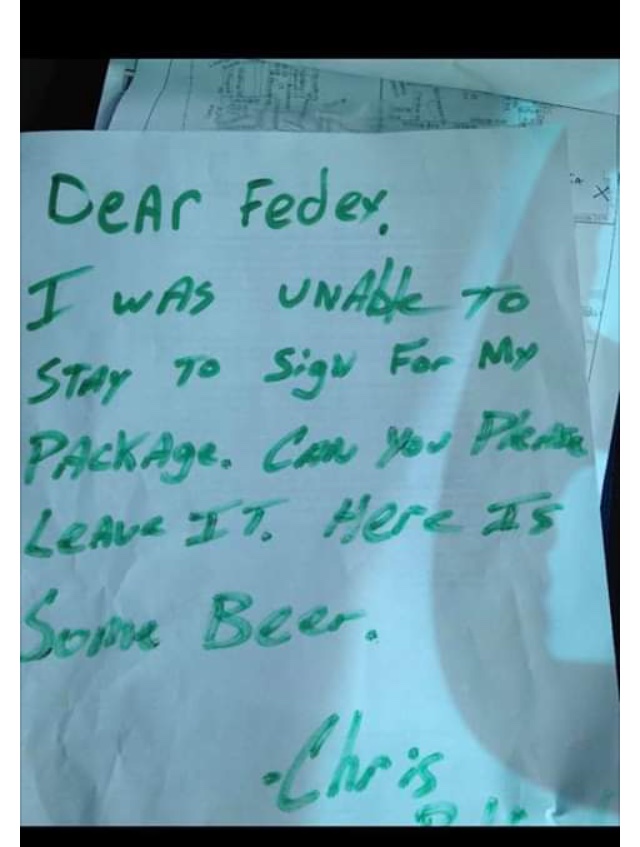 Dear Fedex.
I was unable to
stay to sign for my
package. Can you please
leave it. Here is
some beer.
-Chris